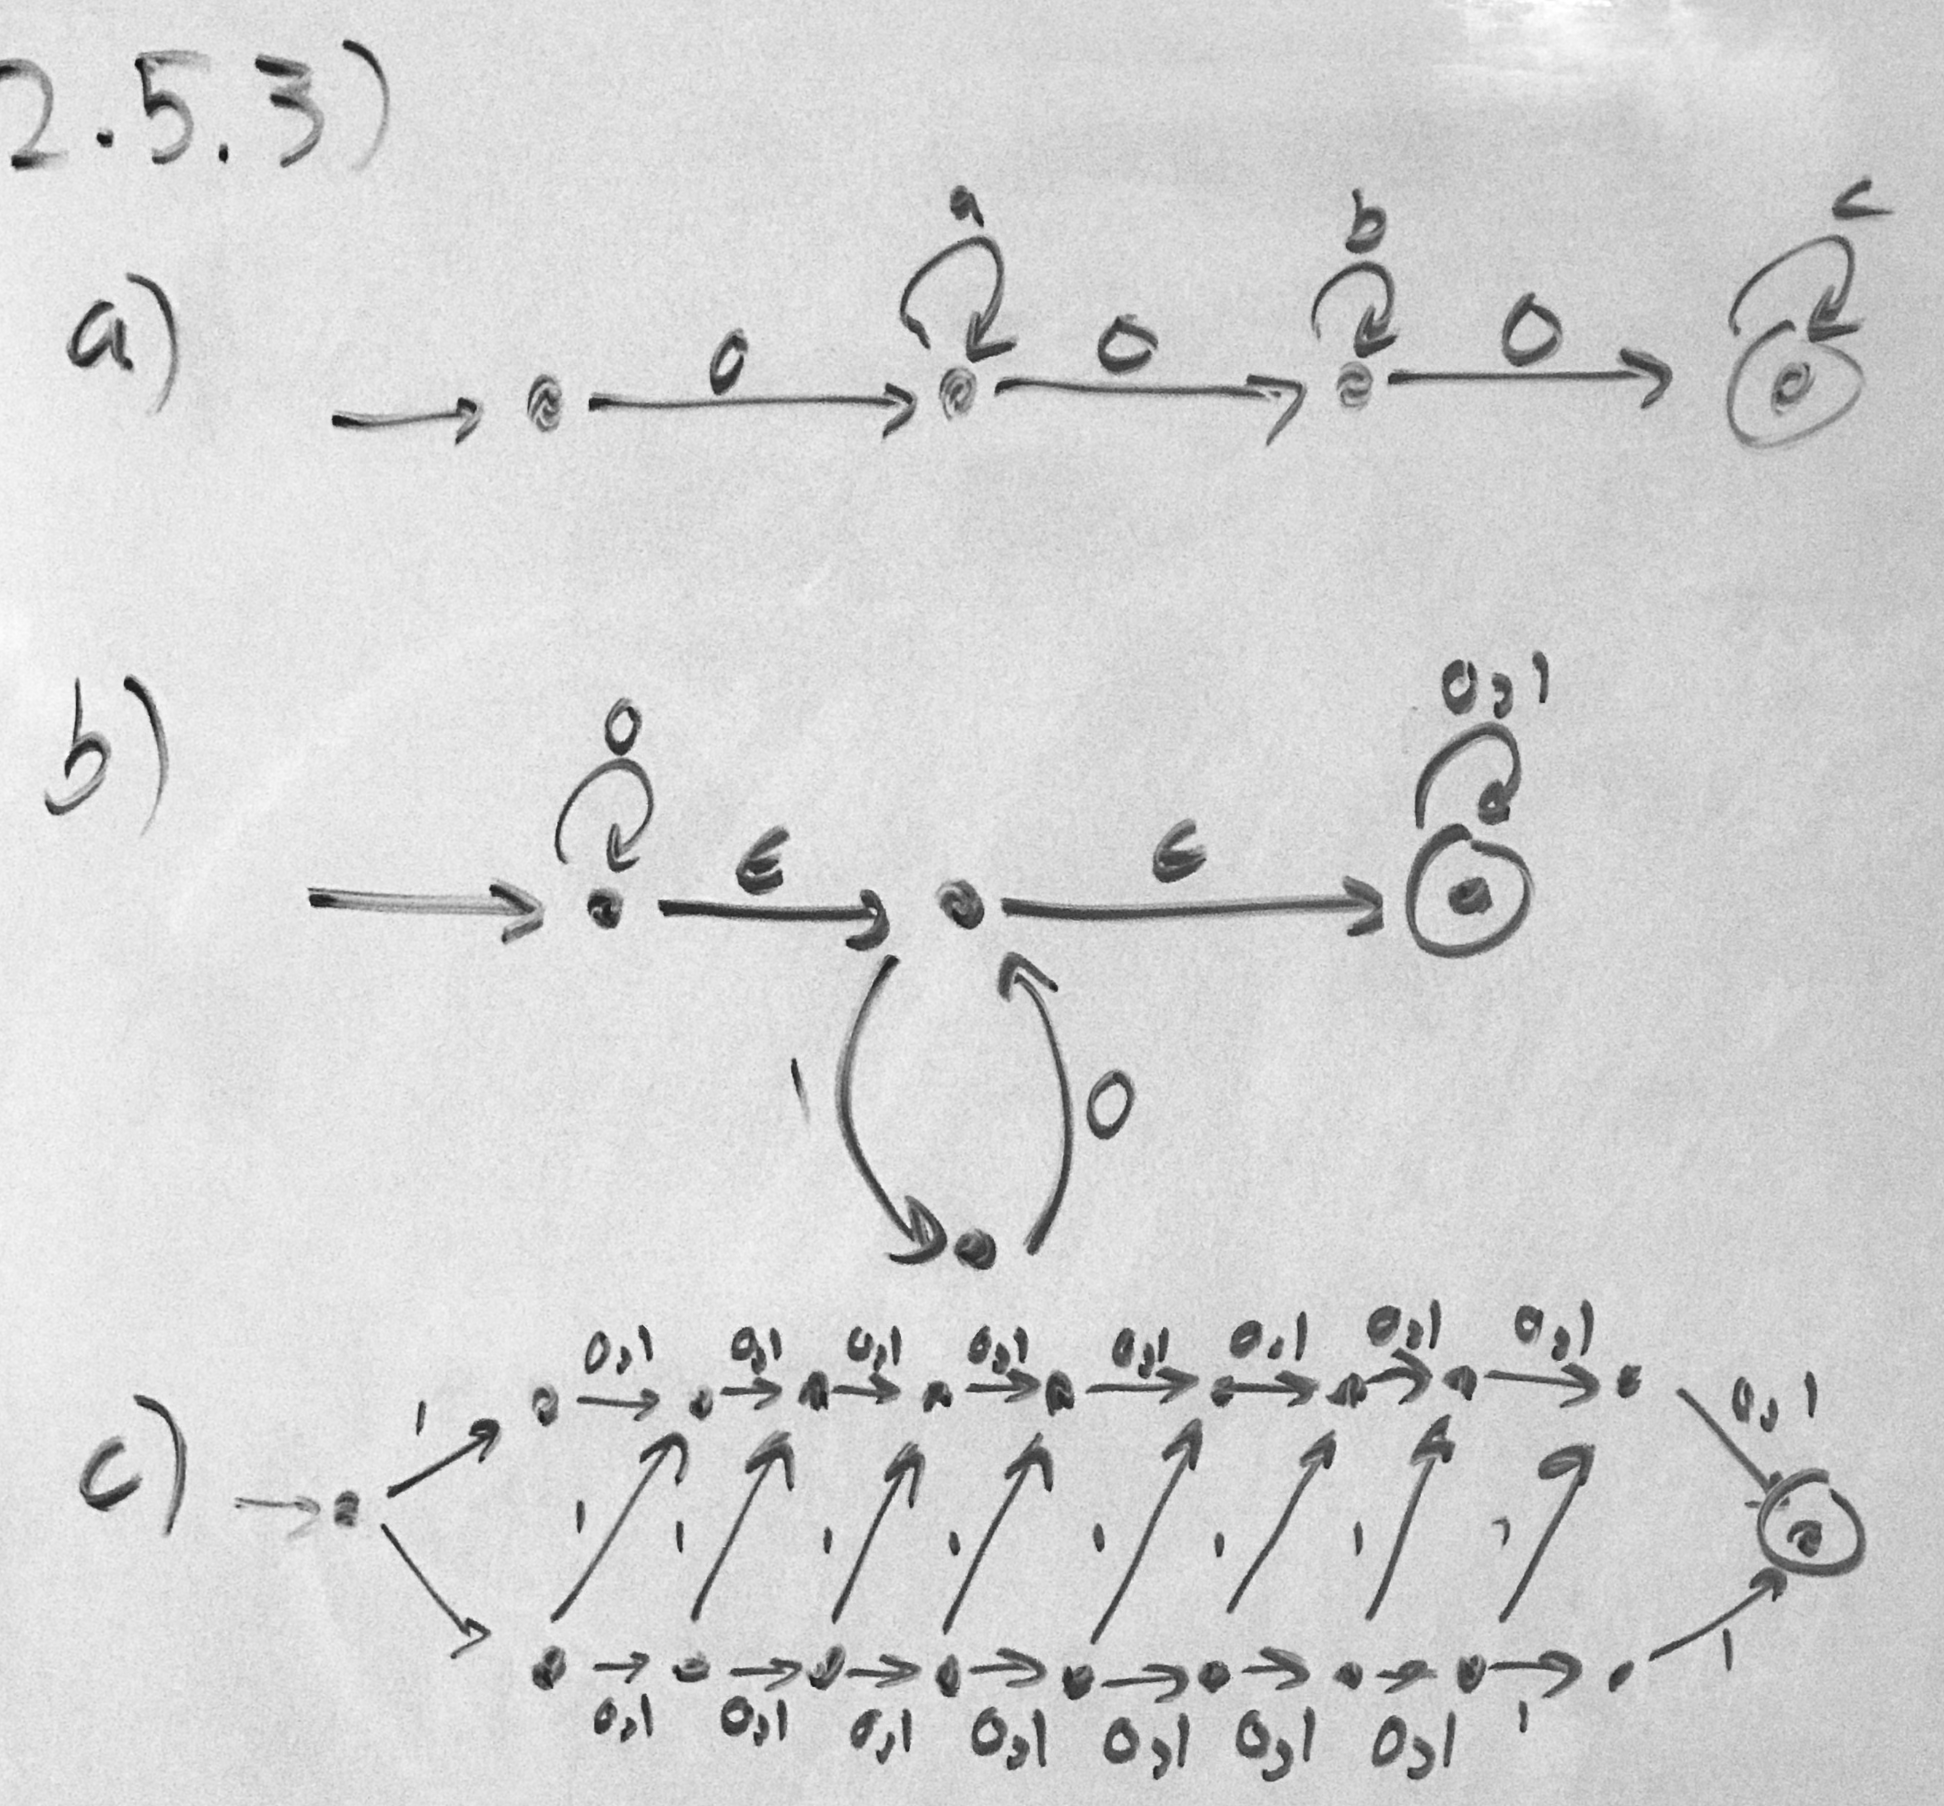 2.5.3)
a b c
a) 0 0 0
0 0,1
b) ϵ ϵ
1 0
0,1 0,1 0,1 0,1 0,1 0,1 0,1 0,1
c) 1 0,1
1 1 1 1 1 1 1 1
1
0,1 0,1 0,1 0,1 0,1 0,1 0,1 1